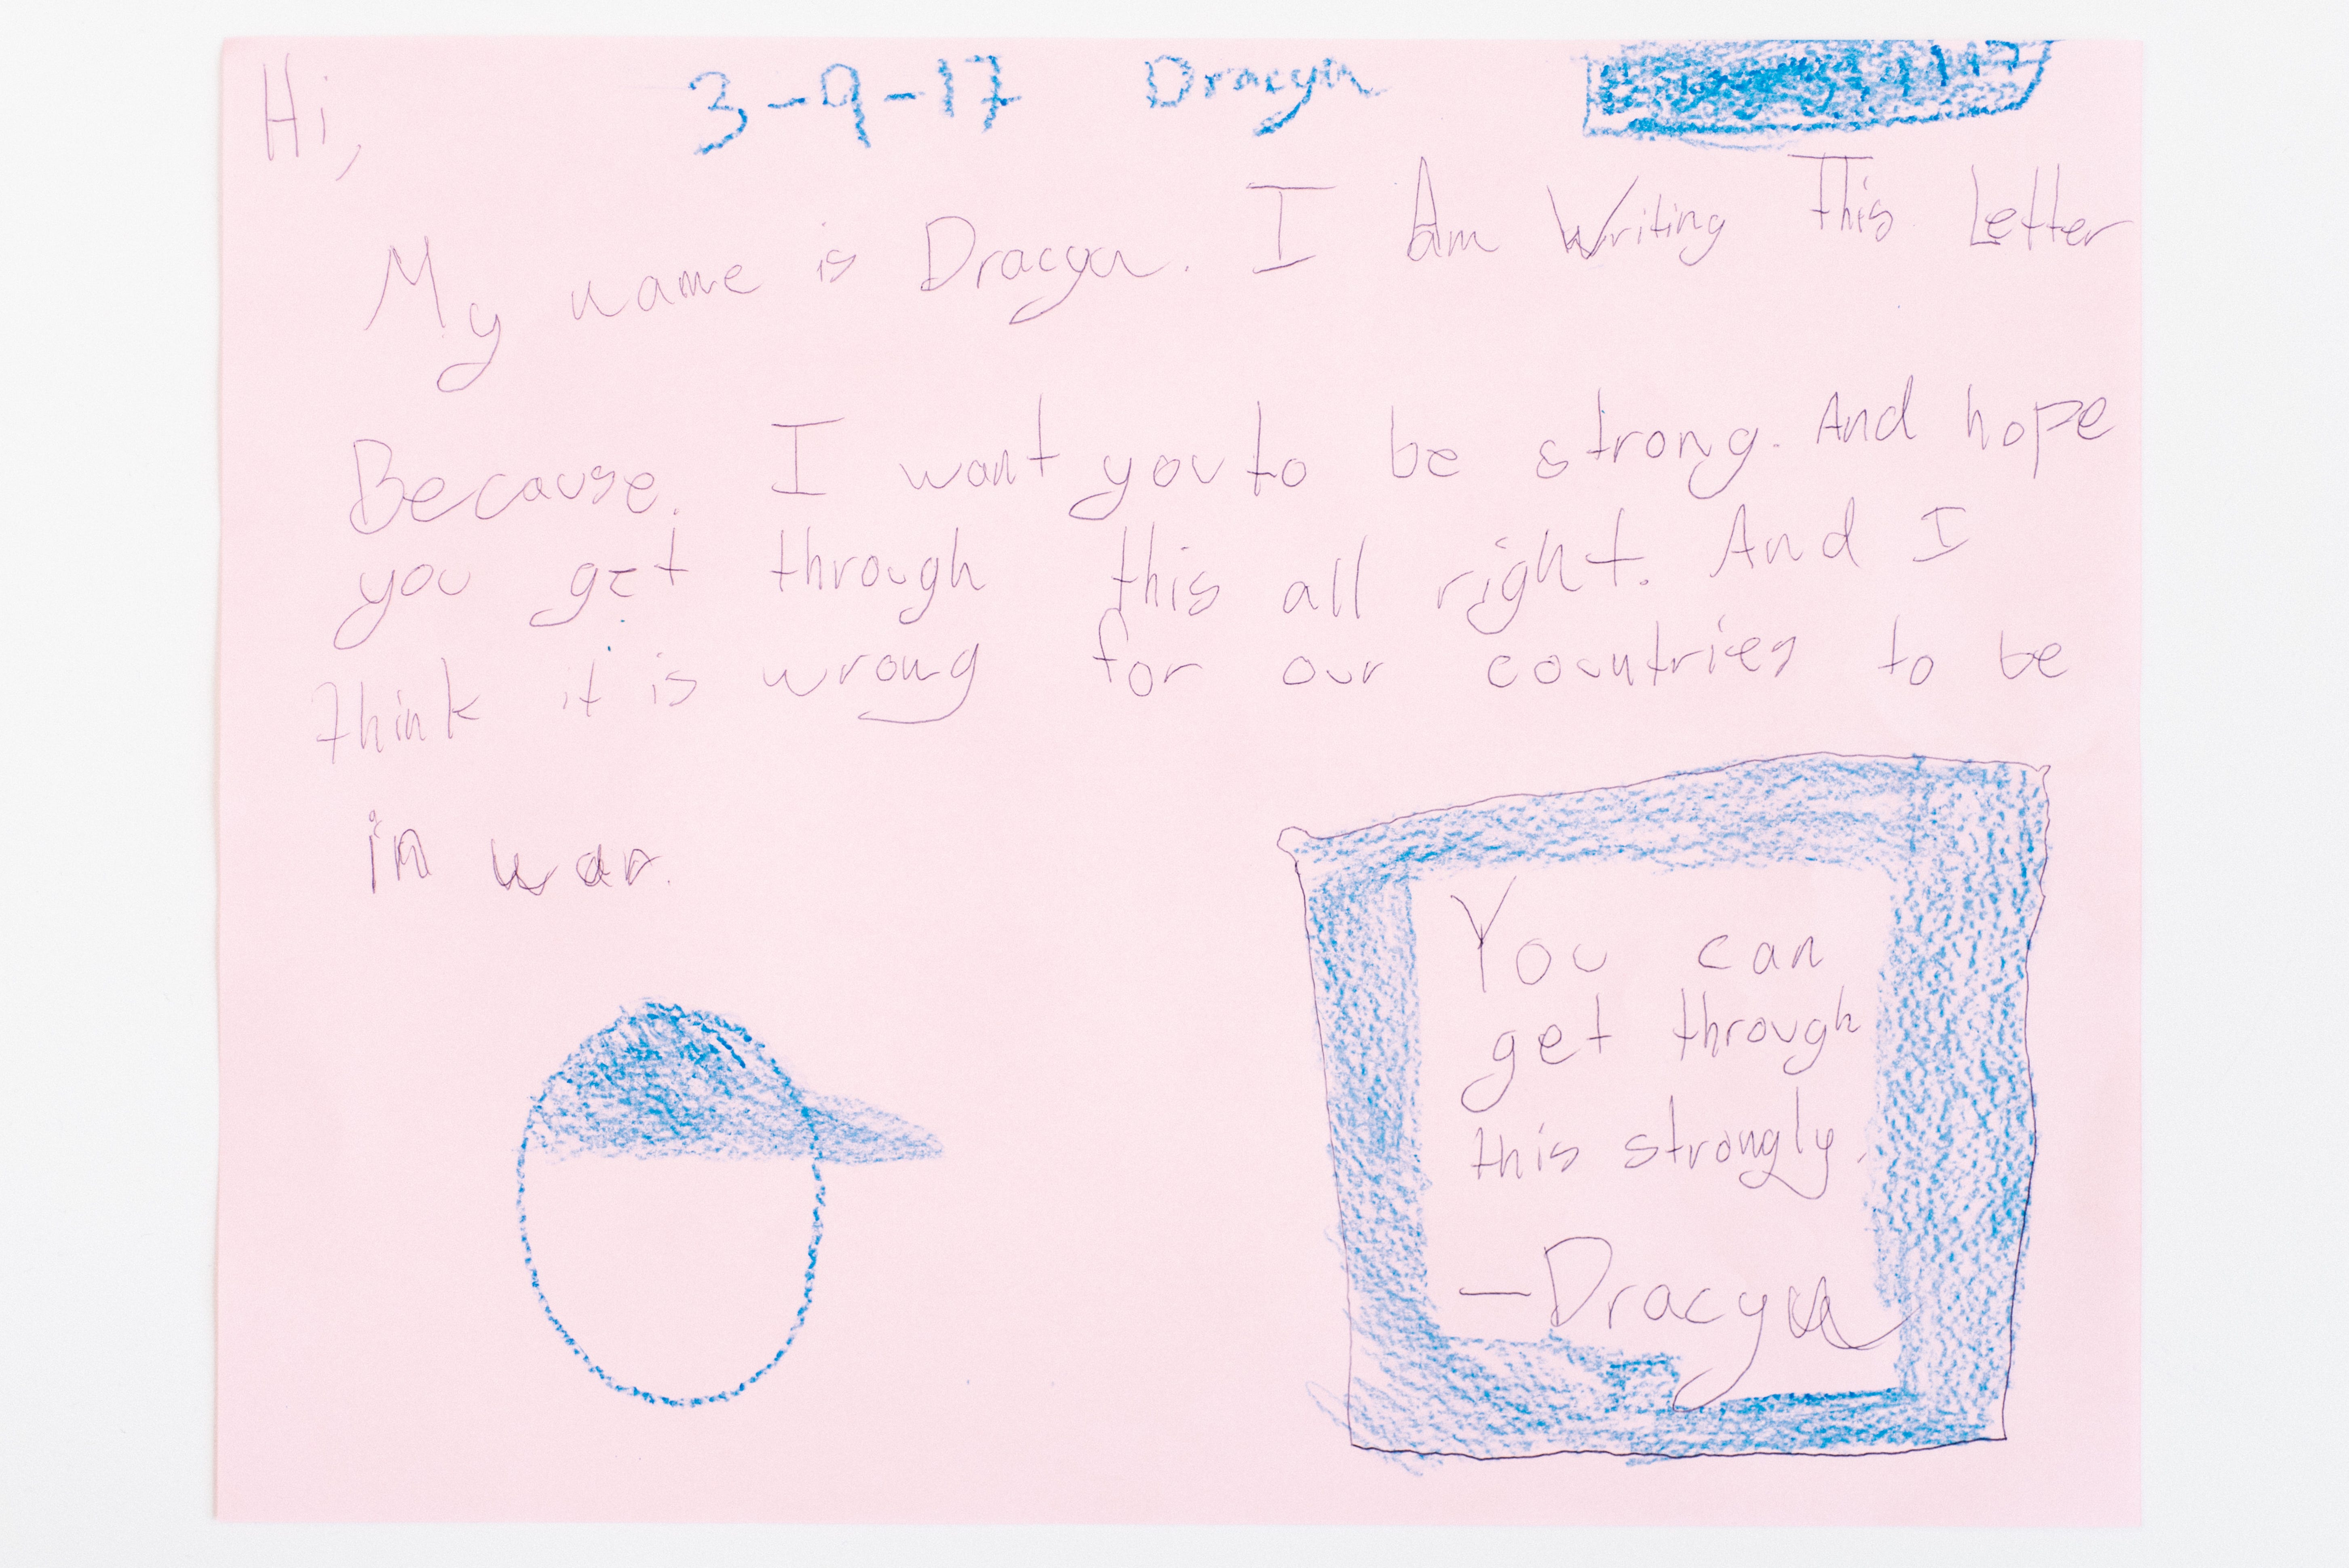 Hi,
3-9-17 Dracyn
My name is Dracyn. I Am Writing This Letter
Because. I want you to be strong. And hope
you get through this all right. And I
think it is wrong for our countries to be
in war.
You can
get through
this strongly.
-Dracyn